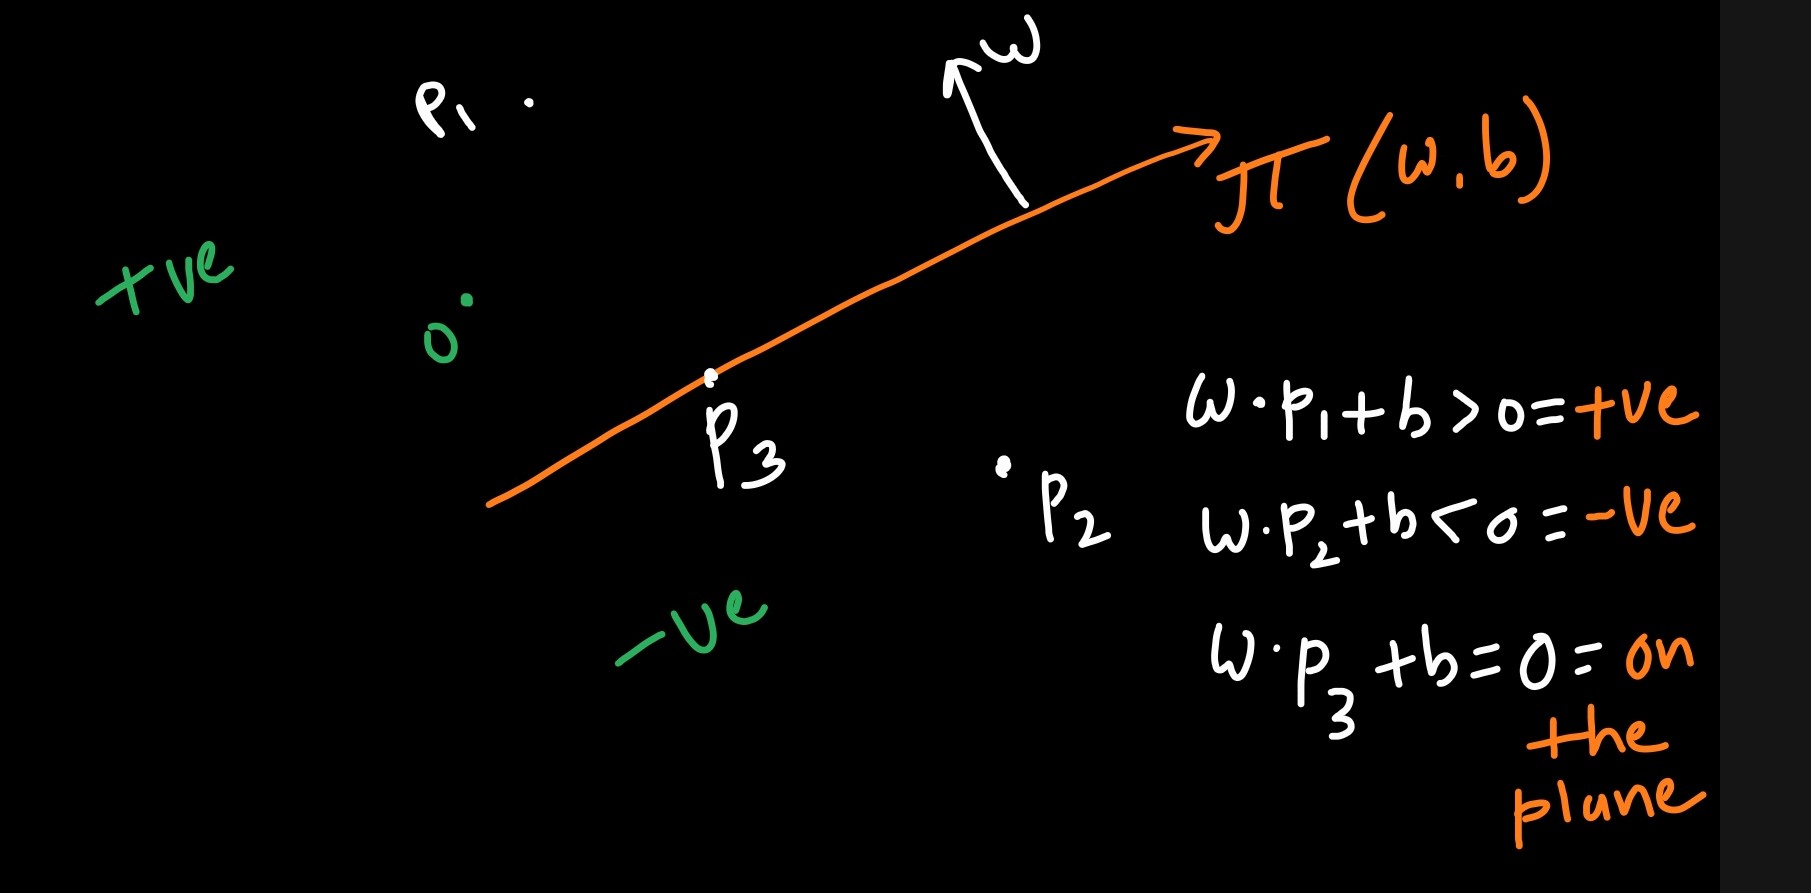 w
P₁ .
π (w, b)
+ve
0
P₃
w·P₁ + b > 0 = +ve
P₂
w·P₂ + b < 0 = -ve
-ve
w·P₃ + b = 0 = on
the
plane